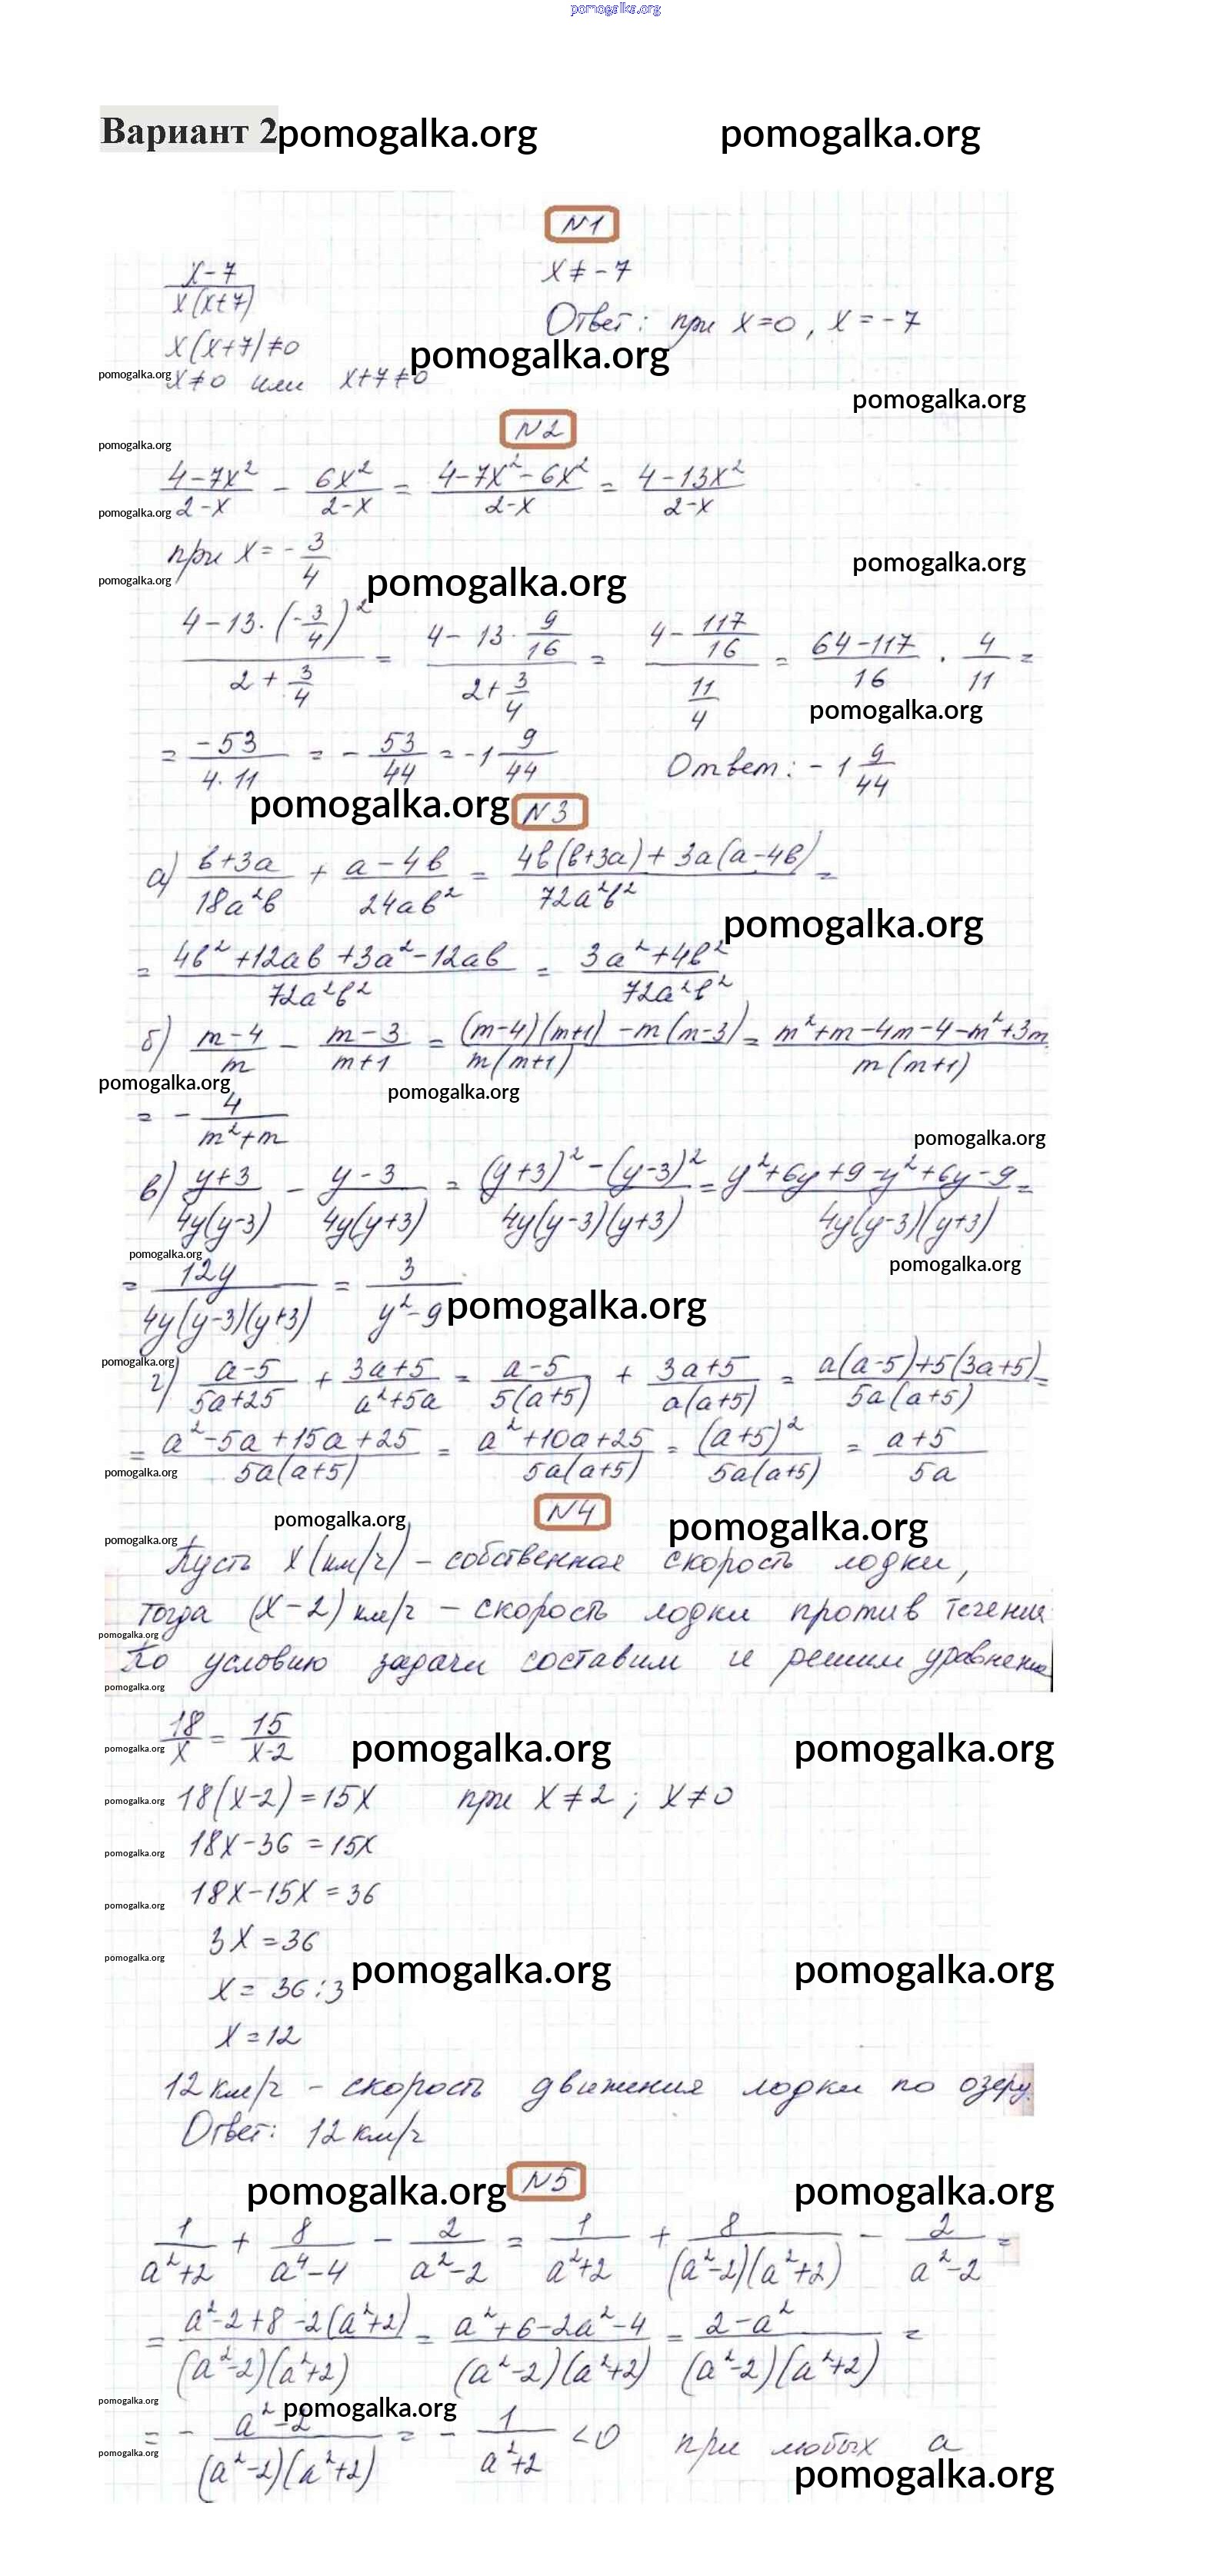 pomogalka.org
Вариант 2 pomogalka.org pomogalka.org
N1
x-7 / x(x+7)
x ≠ -7
Ответ: при x=0, x=-7
x(x+7)≠0
pomogalka.org
pomogalka.org x≠0 или x+7≠0
pomogalka.org
N2
pomogalka.org
(4-7x²)/(2-x) - 6x²/(2-x) = (4-7x²-6x²)/(2-x) = (4-13x²)/(2-x)
pomogalka.org
при x = -3/4
pomogalka.org
pomogalka.org pomogalka.org
(4-13·(-3/4)²)/(2+3/4) = (4-13·9/16)/(2+3/4) = (4-117/16)/(11/4) = (64-117)/16 · 4/11 =
pomogalka.org
= -53/(4·11) = -53/44 = -1 9/44 Ответ: -1 9/44
pomogalka.org N3
а) (в+3а)/(18а²в) + (а-4в)/(24ав²) = (4в(в+3а)+3а(а-4в))/(72а²в²) =
pomogalka.org
= (4в²+12ав+3а²-12ав)/(72а²в²) = (3а²+4в²)/(72а²в²)
б) (m-4)/m - (m-3)/(m+1) = ((m-4)(m+1)-m(m-3))/(m(m+1)) = (m²+m-4m-4-m²+3m)/(m(m+1))
pomogalka.org pomogalka.org
= -4/(m²+m)
pomogalka.org
в) (y+3)/(4y(y-3)) - (y-3)/(4y(y+3)) = ((y+3)²-(y-3)²)/(4y(y-3)(y+3)) = (y²+6y+9-y²+6y-9)/(4y(y-3)(y+3)) =
pomogalka.org pomogalka.org
= 12y/(4y(y-3)(y+3)) = 3/(y²-9) pomogalka.org
pomogalka.org
г) (а-5)/(5а+25) + (3а+5)/(а²+5а) = (а-5)/(5(а+5)) + (3а+5)/(а(а+5)) = (а(а-5)+5(3а+5))/(5а(а+5)) =
= (а²-5а+15а+25)/(5а(а+5)) = (а²+10а+25)/(5а(а+5)) = (а+5)²/(5а(а+5)) = (а+5)/(5а)
pomogalka.org
N4
pomogalka.org pomogalka.org
pomogalka.org
Пусть x (км/ч) - собственная скорость лодки,
тогда (x-2) км/ч - скорость лодки против течения
pomogalka.org
По условию задачи составим и решим уравнение
pomogalka.org
18/x = 15/(x-2)
pomogalka.org pomogalka.org pomogalka.org
pomogalka.org 18(x-2)=15x при x≠2; x≠0
pomogalka.org 18x-36=15x
pomogalka.org 18x-15x=36
3x=36
pomogalka.org
x=36:3 pomogalka.org pomogalka.org
x=12
12 км/ч - скорость движения лодки по озеру.
Ответ: 12 км/ч
pomogalka.org N5 pomogalka.org
1/(a²+2) + 8/(a⁴-4) - 2/(a²-2) = 1/(a²+2) + 8/((a²-2)(a²+2)) - 2/(a²-2) =
= (a²-2+8-2(a²+2))/((a²-2)(a²+2)) = (a²+6-2a²-4)/((a²-2)(a²+2)) = (2-a²)/((a²-2)(a²+2)) =
pomogalka.org pomogalka.org
= -(a²-2)/((a²-2)(a²+2)) = -1/(a²+2) <0 при любых a
pomogalka.org
pomogalka.org